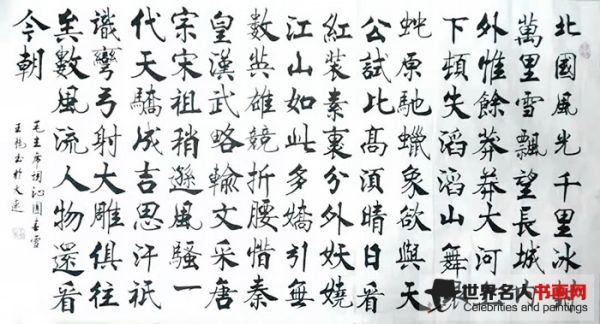 北國風光千里冰
萬里雪飄望長城
外惟餘莽莽大河
下頓失滔滔山舞
虵原馳蠟象欲與天
公試比高須晴日看
紅裝素裹分外妖嬈
江山如此多嬌引無
數英雄競折腰惜秦
皇漢武略輸文采唐
宗宋祖稍遜風騷一
代天驕成吉思汗衹
識彎弓射大雕俱往
矣數風流人物還看
今朝
毛主席詞沁園春雪
世界名人书画网
Celebrities and paintings